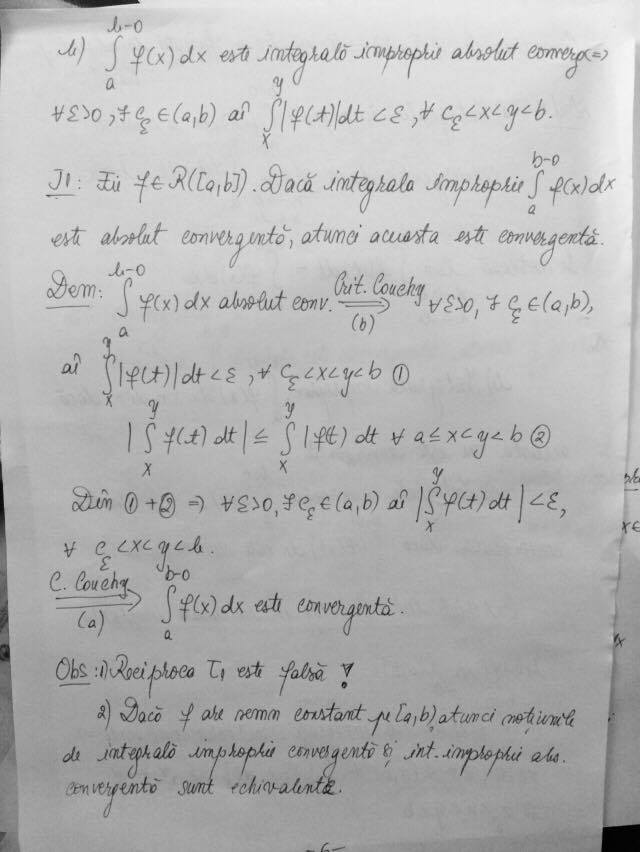 b) ∫_a^{b-0} f(x) dx este integrală improprie absolut converg <=>
∀ε>0, ∃ c_ε ∈ (a,b) aî ∫_x^y |f(t)| dt < ε, ∀ c_ε < x < y < b.
T1: Fie f ∈ R([a,b]). Dacă integrala improprie ∫_a^{b-0} f(x) dx
este absolut convergentă, atunci aceasta este convergentă.
Dem: ∫_a^{b-0} f(x) dx absolut conv. =Crit. Couchy=> (b) ∀ε>0, ∃ c_ε ∈ (a,b),
aî ∫_x^y |f(t)| dt < ε, ∀ c_ε < x < y < b ①
|∫_x^y f(t) dt| ≤ ∫_x^y |f(t) dt ∀ a ≤ x < y < b ②
Din ① + ② => ∀ε>0, ∃ c_ε ∈ (a,b) aî |∫_x^y f(t) dt| < ε,
∀ c_ε < x < y < b.
=C. Couchy=> (a) ∫_a^{b-0} f(x) dx este convergentă.
Obs: 1) Reciproca T1 este falsă !
2) Dacă f are semn constant pe [a,b), atunci noțiunile
de integrală improprie convergentă și int. improprie abs.
convergentă sunt echivalente.
-6-